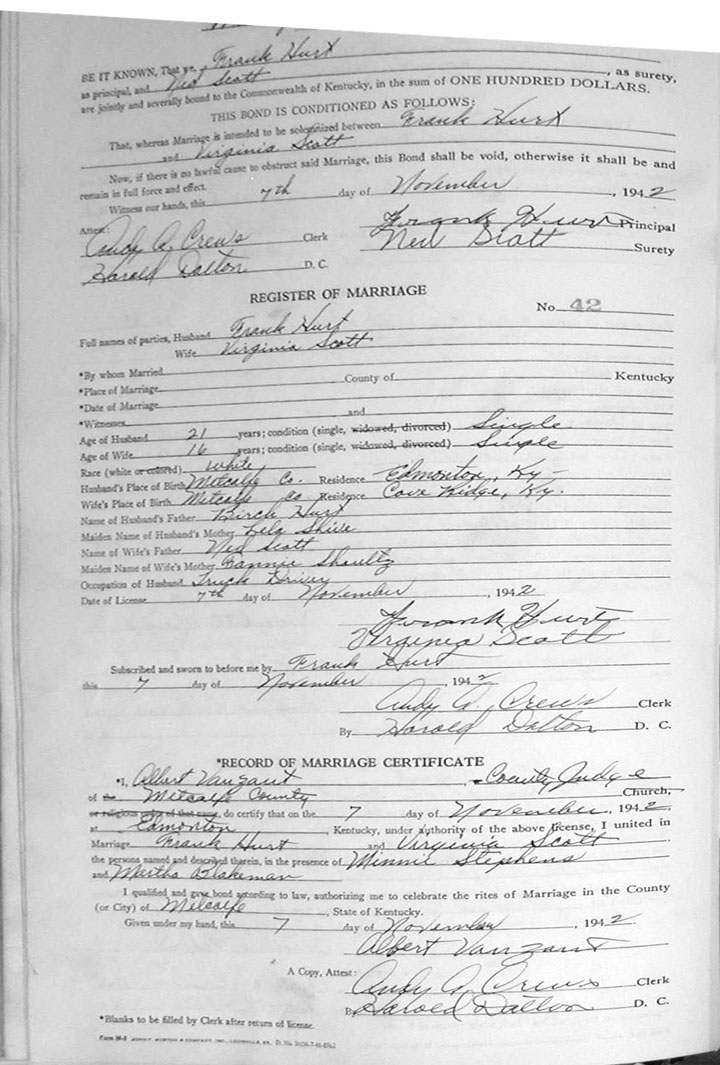 BE IT KNOWN, That we, Frank Hurt
as principal, and Ned Scott, as surety,
are jointly and severally bound to the Commonwealth of Kentucky, in the sum of ONE HUNDRED DOLLARS.
THIS BOND IS CONDITIONED AS FOLLOWS:
That, whereas Marriage is intended to be solemnized between Frank Hurt
and Virginia Scott
Now, if there is no lawful cause to obstruct said Marriage, this Bond shall be void, otherwise it shall be and
remain in full force and effect.
Witness our hands, this 7th day of November, 1942
Attest: Frank Hurt Principal
Andy A. Crews Clerk Ned Scott Surety
Harold Dalton D. C.
REGISTER OF MARRIAGE
No. 42
Full names of parties, Husband Frank Hurt
Wife Virginia Scott
*By whom Married
*Place of Marriage County of Kentucky
*Date of Marriage
*Witnesses and
Age of Husband 21 years; condition (single, widowed, divorced) Single
Age of Wife 16 years; condition (single, widowed, divorced) Single
Race (white or colored) White
Husband's Place of Birth Metcalfe Co. Residence Edmonton, Ky-
Wife's Place of Birth Metcalfe Co Residence Cove Ridge, Ky.
Name of Husband's Father Birch Hurt
Maiden Name of Husband's Mother Lela Shive
Name of Wife's Father Ned Scott
Maiden Name of Wife's Mother Fannie Shoultz
Occupation of Husband Truck Driver
Date of License 7th day of November, 1942
Frank Hurt
Virginia Scott
Subscribed and sworn to before me by Frank Hurt
this 7 day of November 1942
Andy A. Crews Clerk
By Harold Dalton D. C.
*RECORD OF MARRIAGE CERTIFICATE
*I, Albert Vanzant, County Judge
of the Metcalfe County Church,
or religious order of that name, do certify that on the 7 day of November, 1942
at Edmonton Kentucky, under authority of the above license, I united in
Marriage Frank Hurt and Virginia Scott
the persons named and described therein, in the presence of Minnie Stephens
and Martha Blakeman
I qualified and gave bond according to law, authorizing me to celebrate the rites of Marriage in the County
(or City) of Metcalfe, State of Kentucky.
Given under my hand, this 7 day of November, 1942
Albert Vanzant
A Copy, Attest:
Andy A. Crews Clerk
By Harold Dalton D. C.
*Blanks to be filled by Clerk after return of license.
JOHN P. MORTON & COMPANY, INC., LOUISVILLE, KY.